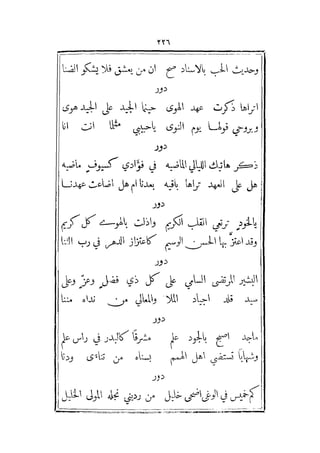 ٢٢٦
وحديث الحب بالاسناد صح ان من يعشق فلا يشكو الضنا
دور
اتراها ذكرت عهد الهوى حينما الجيد على الجيد هوى
وبروحي قولهـا يوم النوى ياحبيبي مثلما انت انا
دور
ذكر هاتيك الليالي الماضيه في فؤادي كسيوف ماضيه
هل على العهد تراها باقيه بعدنا ام هل اضاعت عهدنـا
دور
يالخود ترتعي القلب الكريم واذلت بالهوى كل كريم
وقد اعتز بها الحسن الوسيم كاعتزاز الدهر في رب الثنا
دور
البشير المرتضى السامي على كل ذي فضل وعز وعلى
سيد قلد اجياد الملا والمعالي من نداه مننا
دور
ماجد اصبح بالجود علم مشرقًا كالبدر في راس علم
وشهابًا تستضي اهل الهمم بسناه من تناءى ودنا
دور
كم خميس في الوغى اضحى خليل من رديني نجله المولى الخليل